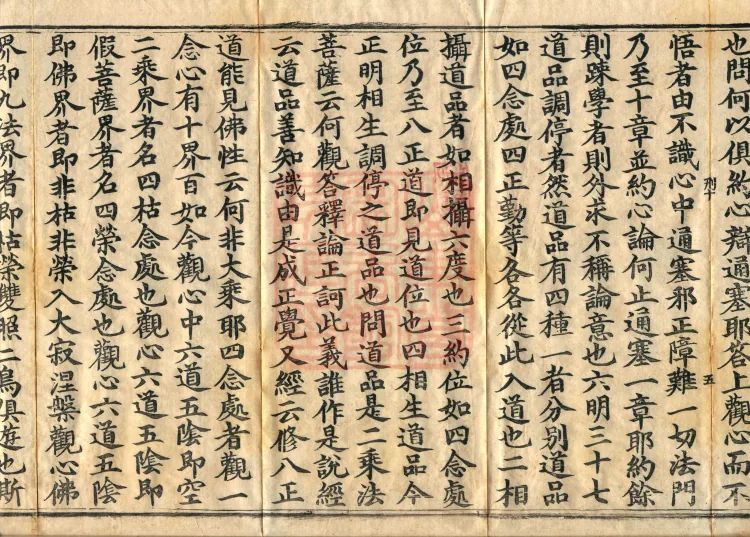 也問何以俱約心辯通塞耶答上觀心而不
悟者由不識心中通塞邪正障難一切法門
乃至十章並約心論何止通塞一章耶約餘
則踈學者則外求不稱論意也六明三十七
道品調停者然道品有四種一者分別道品
如四念處四正勤等各各從此入道也二相
攝道品者如相攝六度也三約位如四念處
位乃至八正道即見道位也四相生道品今
正明相生調停之道品也問道品是二乘法
菩薩云何觀答釋論正訶此義誰作是說經
云道品善知識由是成正覺又經云修八正
道能見佛性云何非大乘耶四念處者觀一
念心有十界百如今觀心中六道五陰即空
二乘界者名四枯念處也觀心六道五陰即
假菩薩界者名四榮念處也觀心六道五陰
即佛界者即非枯非榮入大寂涅槃觀心佛
界即九法界者即枯榮雙照二鳥俱遊也斯
五